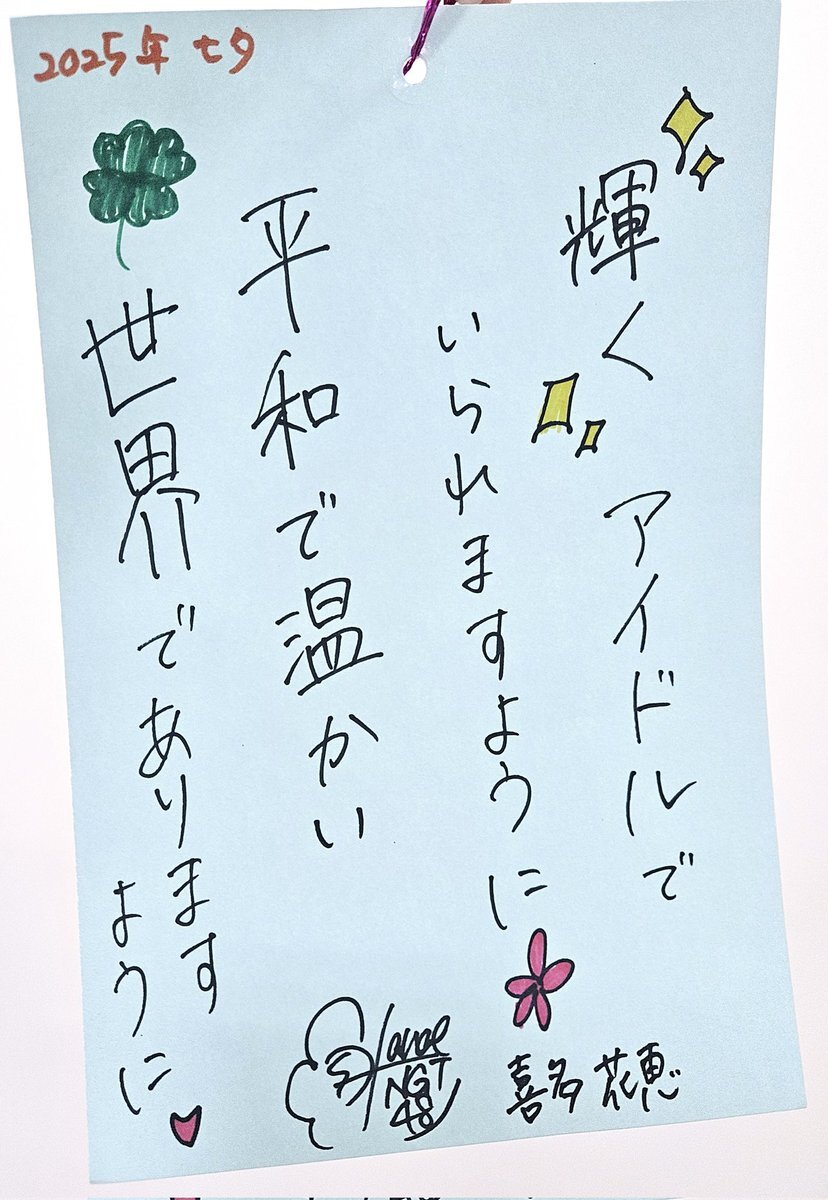 2025年 七夕
輝く アイドルで
いられますように
平和で温かい
世界であります
ように
喜多 花恵
Hanae
NGT
48